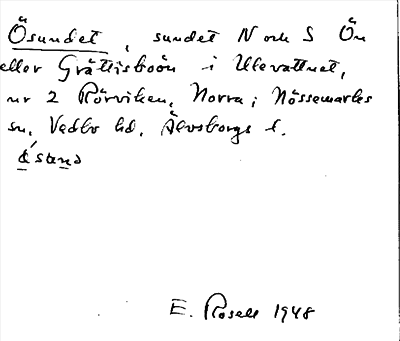 Ösundet, sundet N och S Ön
eller Grättisboön i Ulevattnet,
nr 2 Rörviken, Norra i Nössemarks
sn, Vedbo hd, Älvsborgs l.
E. Rosell 1948